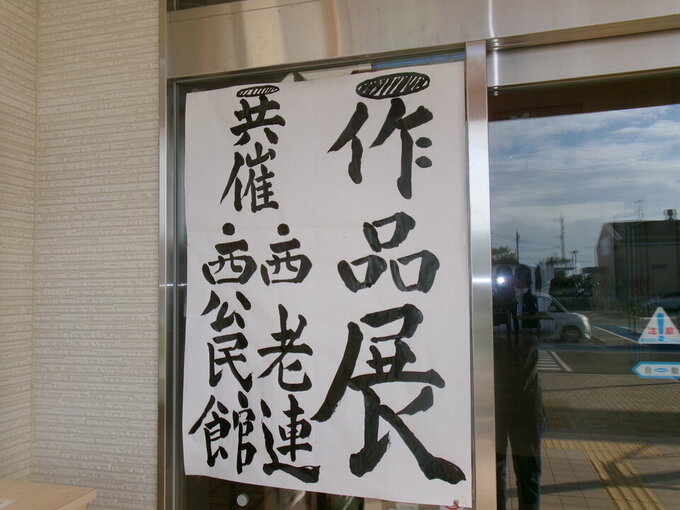 作品展
共催
西老連
西公民館
注意
自動